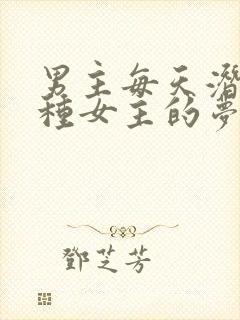 男主每天潛
種女主的夢
鄧芝芳